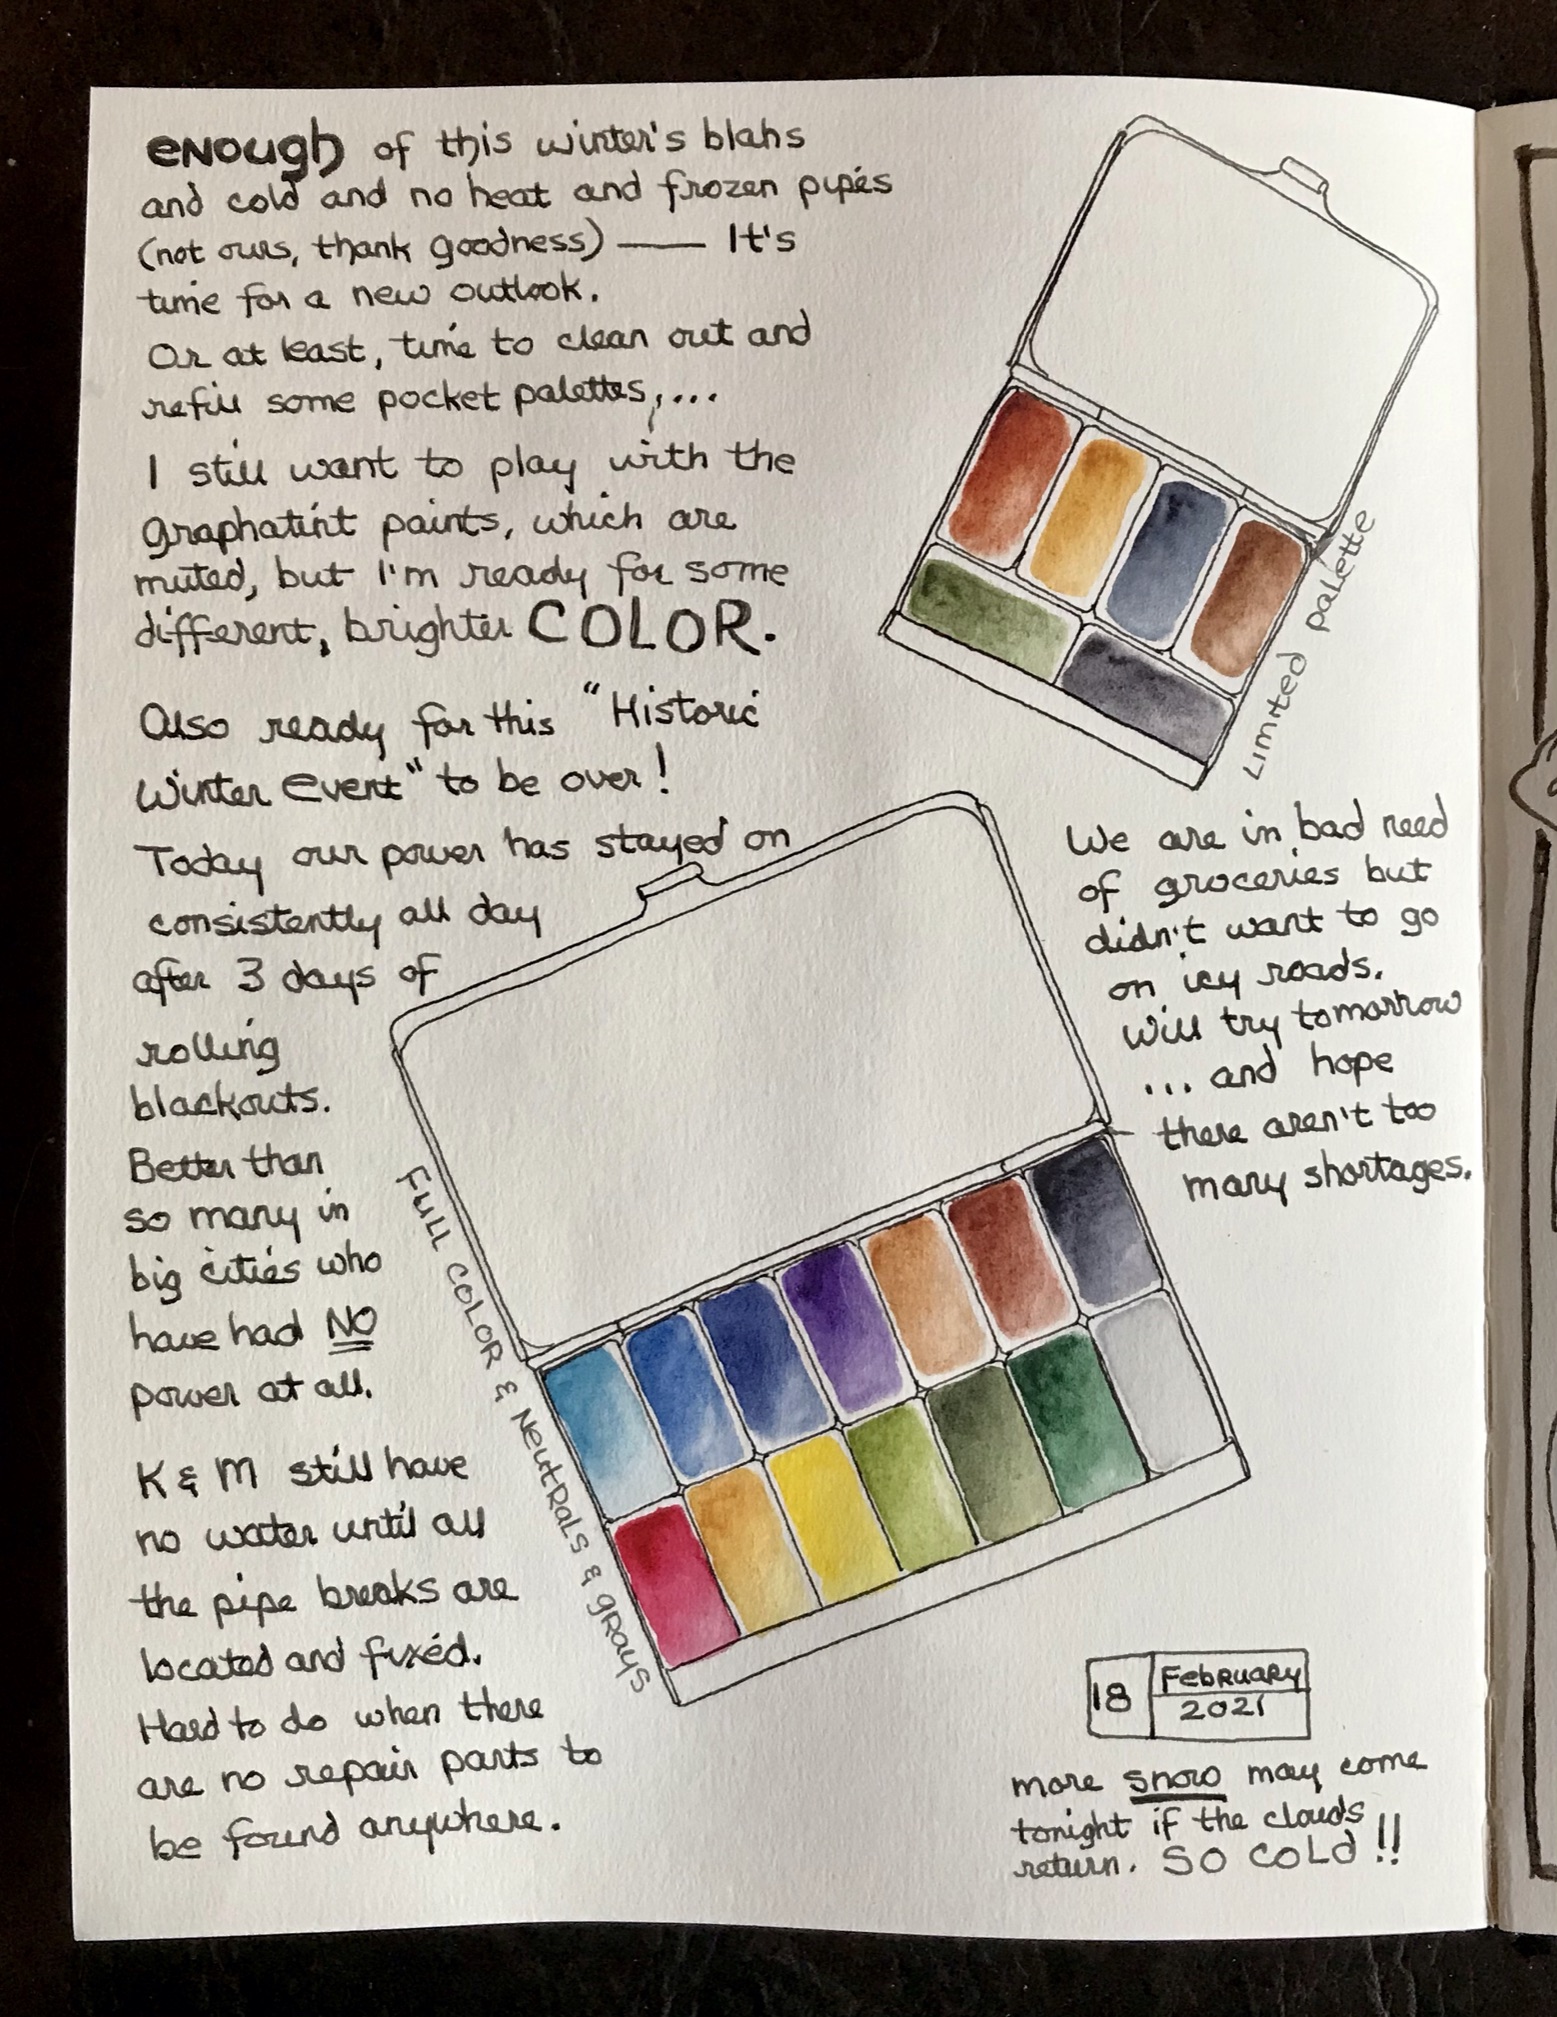 enough of this winter's blahs
and cold and no heat and frozen pipes
(not ours, thank goodness) —— It's
time for a new outlook.
Or at least, time to clean out and
refill some pocket palettes,...
I still want to play with the
graphatint paints, which are
muted, but I'm ready for some
different, brighter COLOR.
Also ready for this "Historic
Winter Event" to be over!
Today our power has stayed on
consistently all day
after 3 days of
rolling
blackouts.
Better than
so many in
big cities who
have had NO
power at all.
K & M still have
no water until all
the pipe breaks are
located and fixed.
Hard to do when there
are no repair parts to
be found anywhere.
Limited palette
We are in bad need
of groceries but
didn't want to go
on icy roads.
Will try tomorrow
... and hope
there aren't too
many shortages.
Full color & Neutrals & grays
18 February
2021
more snow may come
tonight if the clouds
return. SO COLD!!